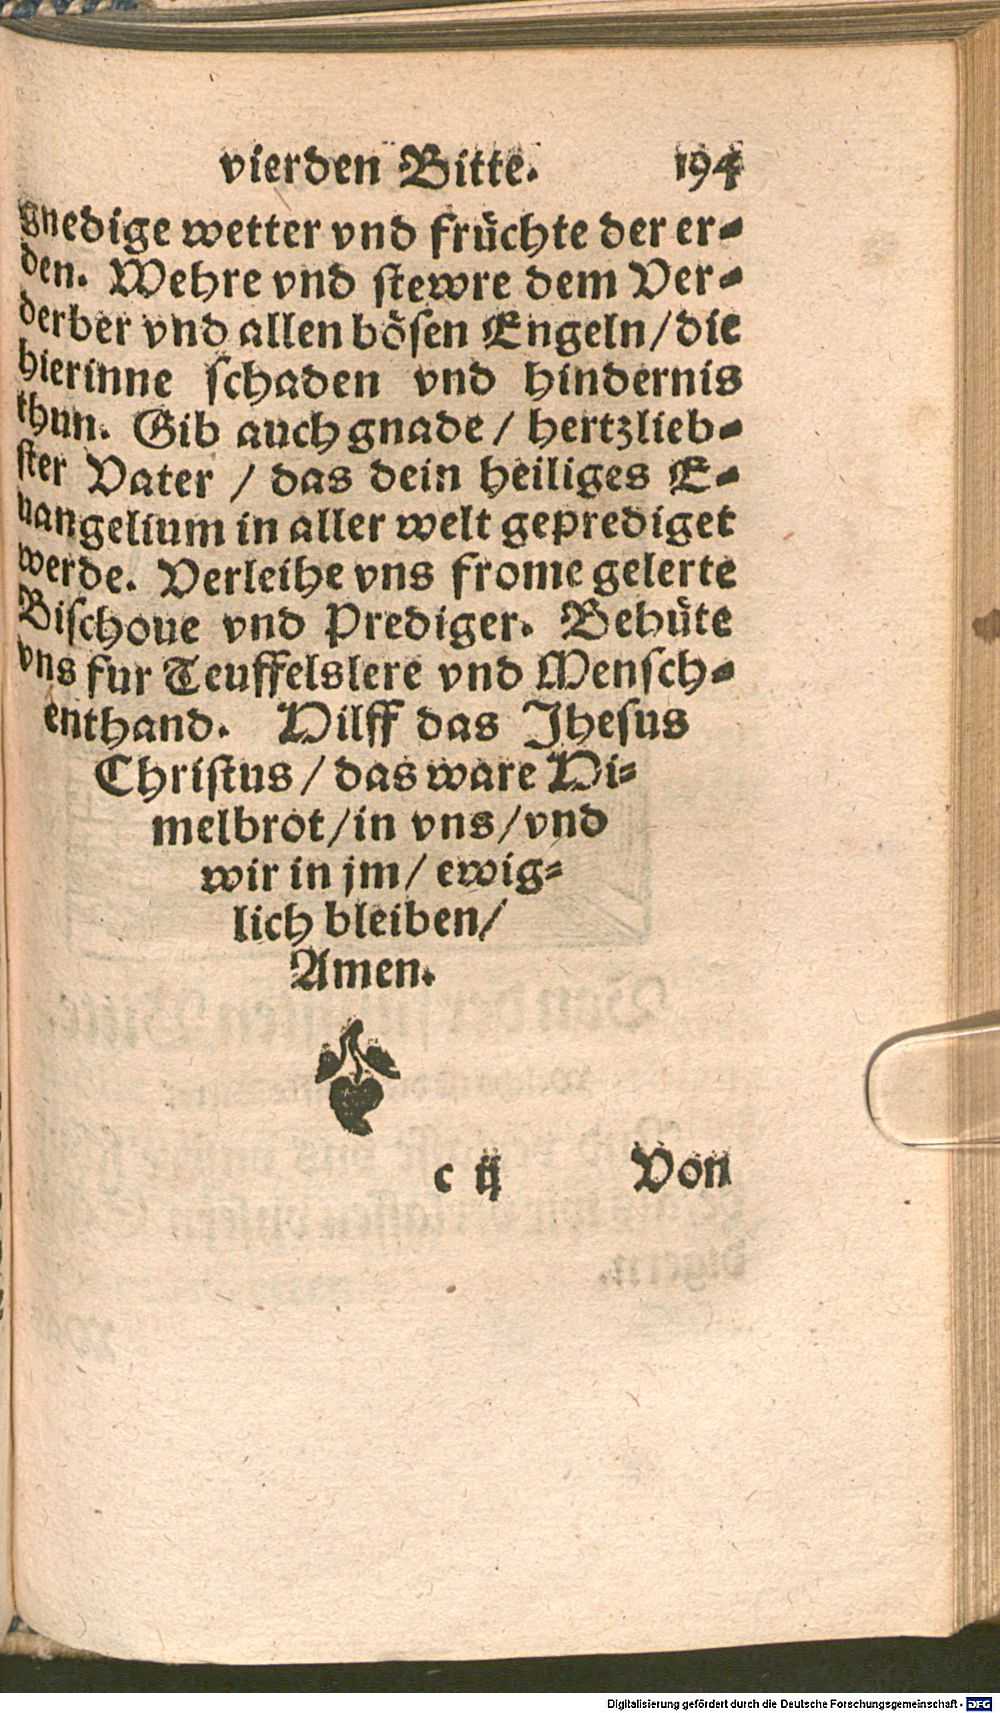 vierden Bitte. 194
gnedige wetter vnd früchte der er-
den. Wehre vnd stewre dem Ver-
derber vnd allen bösen Engeln/die
hierinne schaden vnd hindernis
thun. Gib auch gnade / hertzlieb-
ster Vater / das dein heiliges E-
uangelium in aller welt geprediget
werde. Verleihe vns frome gelerte
Bischoue vnd Prediger. Behüte
vns fur Teuffelslere vnd Mensch-
enthand. Hilff das Jhesus
Christus / das ware Hi-
melbrot/in vns/vnd
wir in jm/ ewig-
lich bleiben/
Amen.
c ij Von
Digitalisierung gefördert durch die Deutsche Forschungsgemeinschaft - DFG